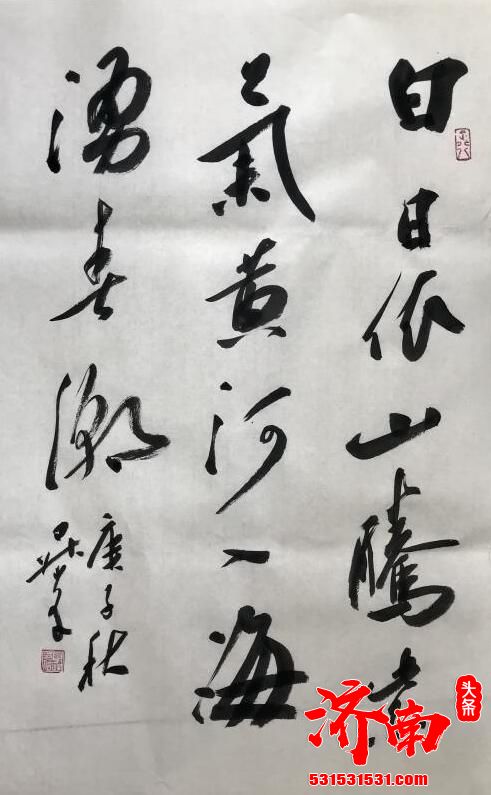 白日依山騰紫
氣黄河入海
湧春潮
庚子秋
济南
头条
531531531.com